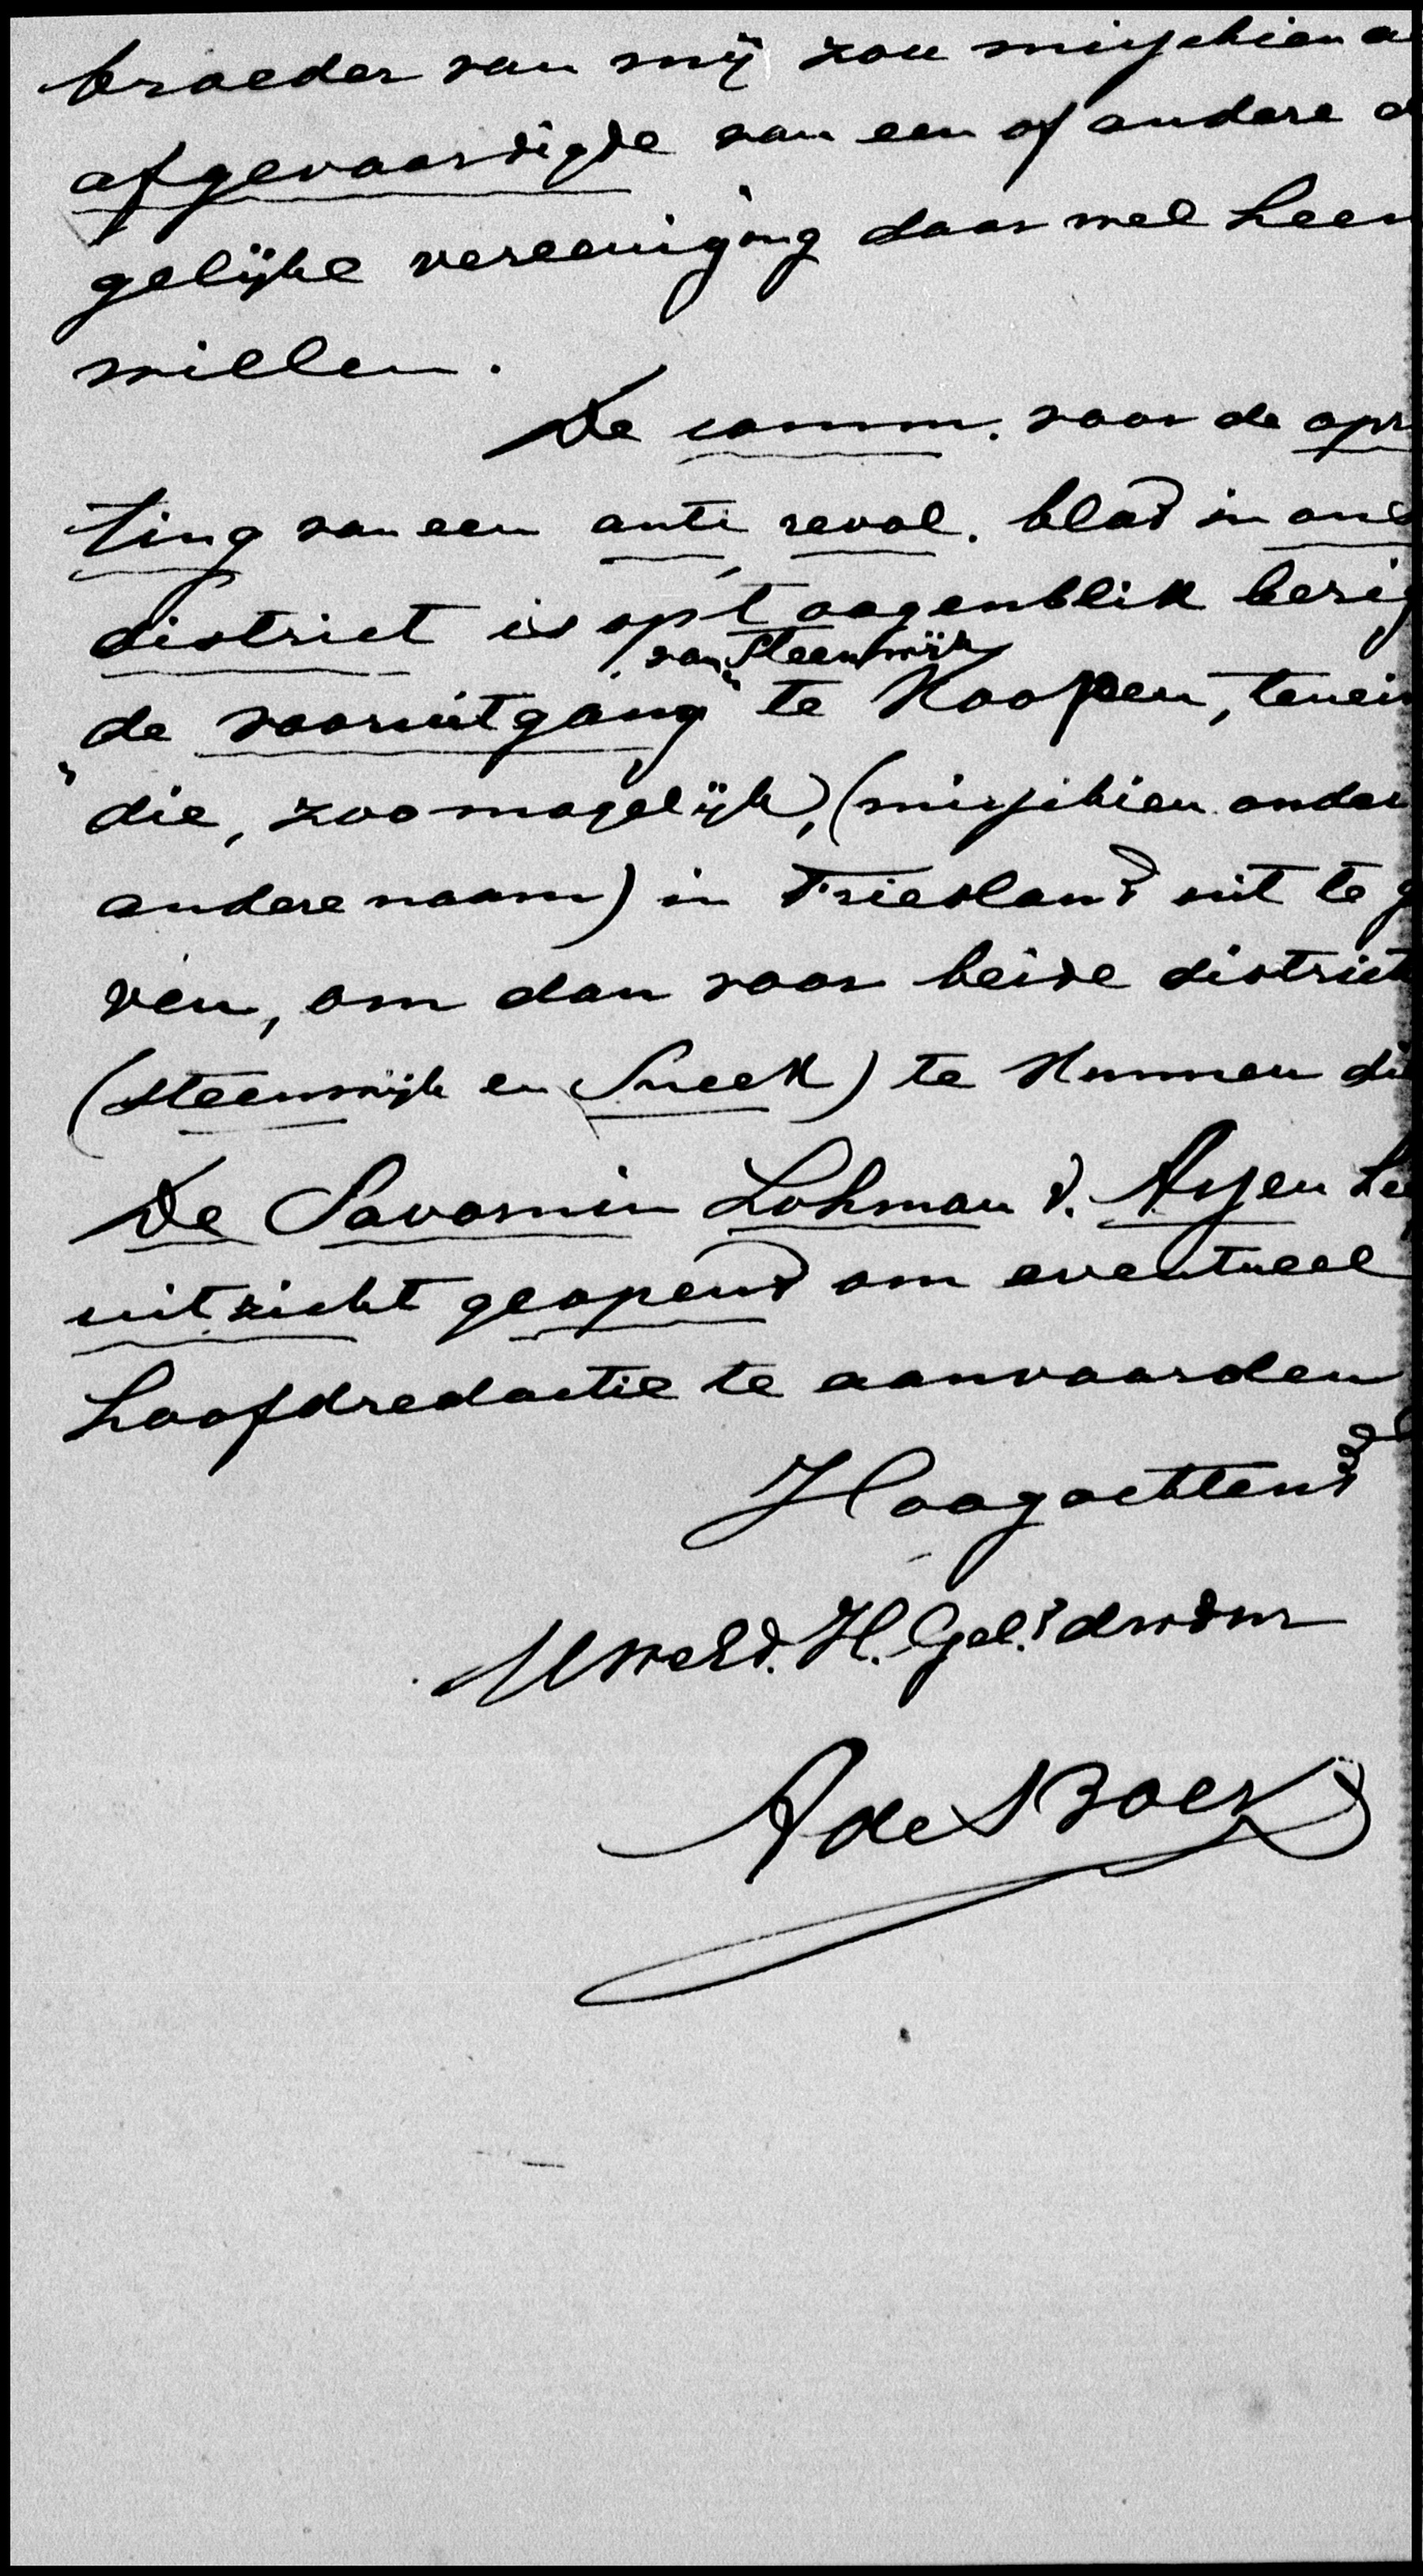 broeder van mij zou misschien a
afgevaardigde van een of andere d
gelijke vereeniging daar wel heen
willen.
De comm. voor de opr
ting van een anti reval. blad in ons
district is op 't oogenblik bezig
van Steenwijk
"de vooruitgang" te Koopen, tenein
die, zoo mogelijk, (misschien onder
andere naam) in Friesland uit te g
ven, om dan voor beide district
(Steenwijk en Sneek) te Kunnen di
De Savornin Lohman v. Assen he
uitzicht geopend om eventueel
hoofdredactie te aanvaarden
Hoogachtend
UwelEd. H. Gel. dwdnr
A de Boer